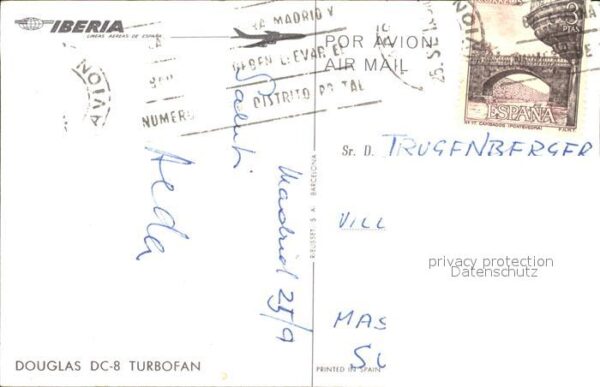 IBERIA
LINEAS AEREAS DE ESPAÑA
MADRID Y
DEBEN LLEVAR EL
NUMERO DISTRITO POSTAL
AVION
POR AVION
AIR MAIL
CORREOS
3
PTAS
ESPAÑA
CAMBADOS (PONTEVEDRA) F.N.M.T.
Saluti
Aeda
Madrid 25/9
Sr. D. TRUGENBERGER
VILL
MAS
privacy protection
Datenschutz
RIEUSSET S. A. BARCELONA
DOUGLAS DC-8 TURBOFAN
PRINTED IN SPAIN